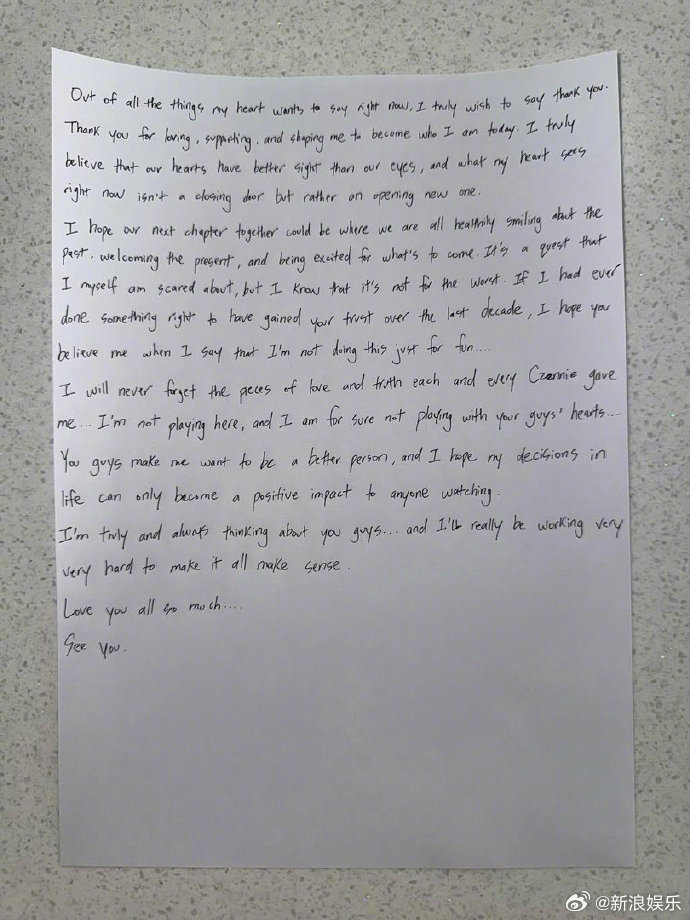 Out of all the things my heart wants to say right now, I truly wish to say thank you.
Thank you for loving, supporting, and shaping me to become who I am today. I truly
believe that our hearts have better sight than our eyes, and what my heart sees
right now isn't a closing door but rather an opening new one.
I hope our next chapter together could be where we are all healthily smiling about the
past, welcoming the present, and being excited for what's to come. It's a quest that
I myself am scared about, but I know that it's not for the worst. If I had ever
done something right to have gained your trust over the last decade, I hope you
believe me when I say that I'm not doing this just for fun....
I will never forget the pieces of love and truth each and every Czennie gave
me... I'm not playing here, and I am for sure not playing with your guys' hearts...
You guys make me want to be a better person, and I hope my decisions in
life can only become a positive impact to anyone watching.
I'm truly and always thinking about you guys... and I'll really be working very
very hard to make it all make sense.
Love you all so much....
See you.
@新浪娱乐